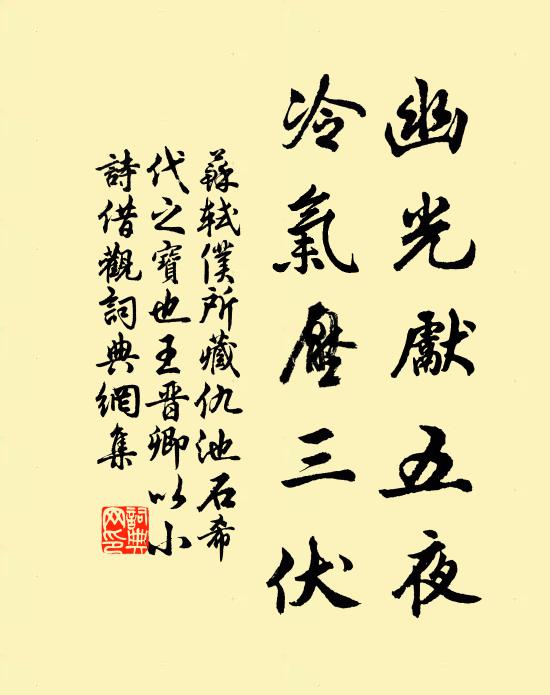 幽光獻五夜
冷氣壓三伏
蘇軾僕所藏仇池石希
代之寶也王晋卿以小
詩借觀詞典網集
詞典
网印